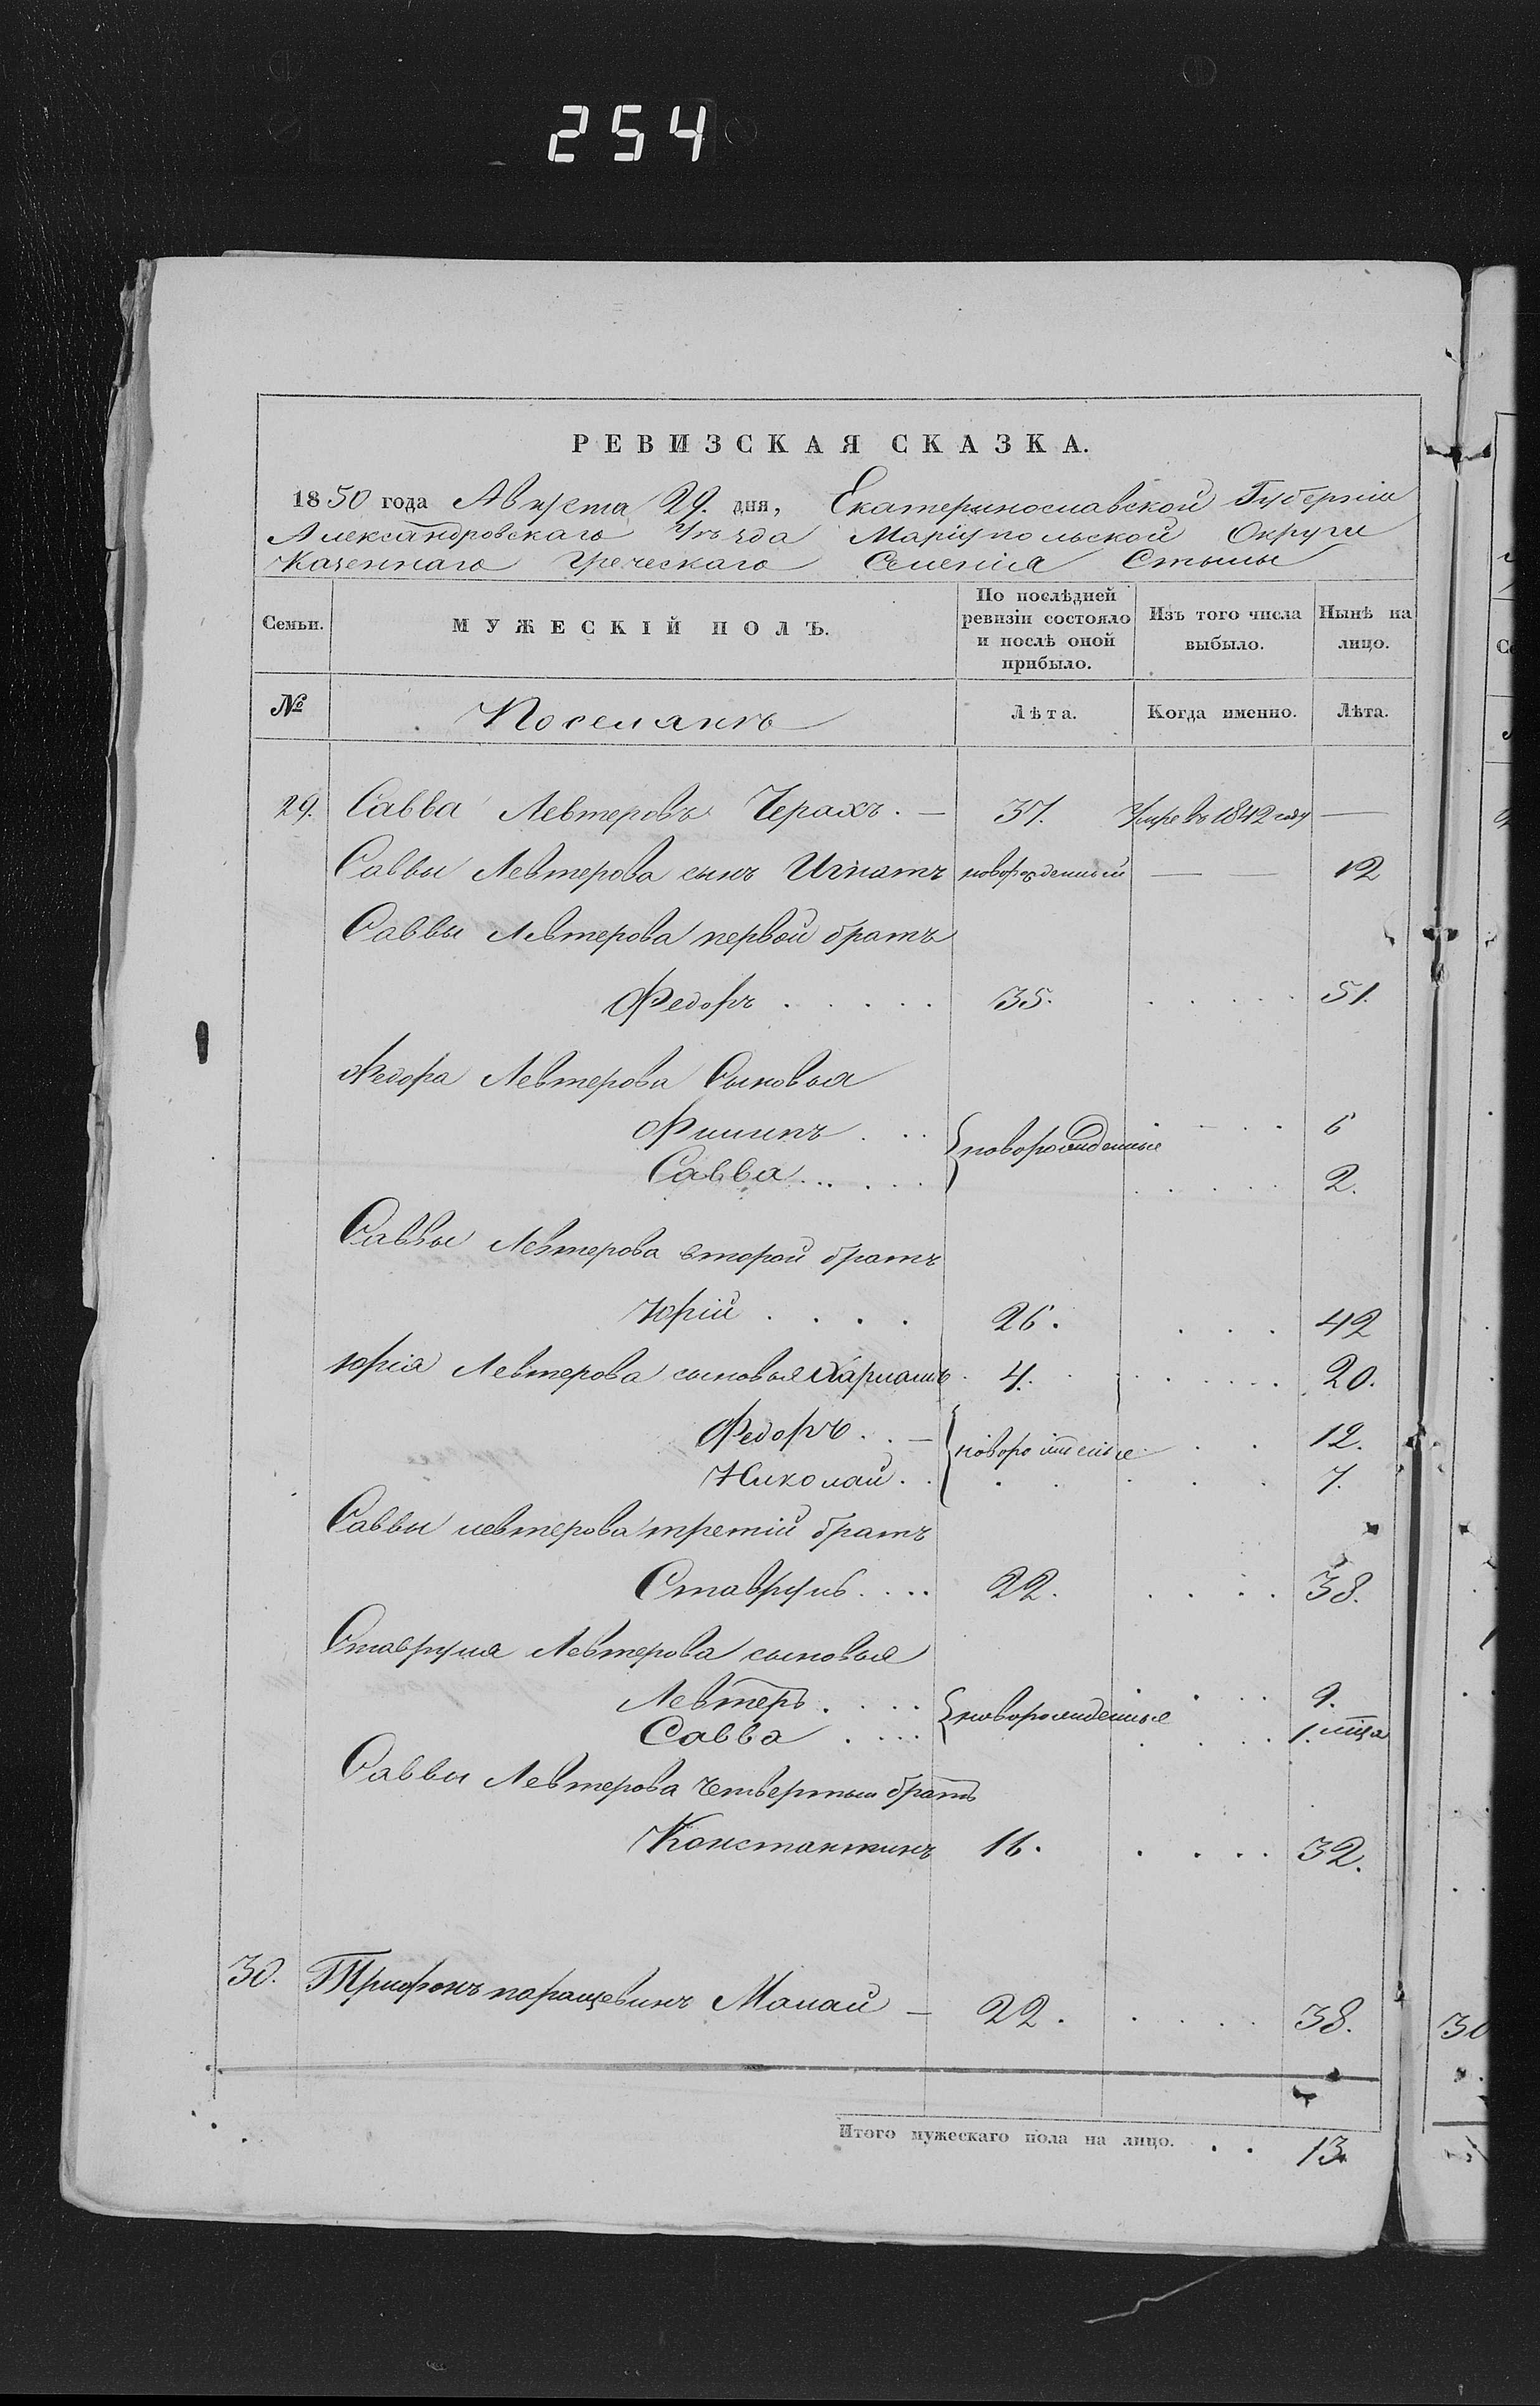 254
РЕВИЗСКАЯ СКАЗКА.
1850 года Августа 29. дня, Екатеринославской Губерніи
Александровскаго Уѣзда Маріупольской Округи
Казеннаго Греческаго Селенія Стылы
Семьи. МУЖЕСКІЙ ПОЛЪ. По послѣдней ревизіи состояло и послѣ оной прибыло. Изъ того числа выбыло. Нынѣ на лицо.
№ Поселянъ Лѣта. Когда именно. Лѣта.
29. Савва Левтеровъ Черахъ. — 37. Умре въ 1842 году —
Саввы Левтерова сынъ Игнатъ новорожденный — — 12
Саввы Левтерова первой братъ
Федоръ . . . . . 35. . . . . . 51.
Федора Левтерова Сыновья
Филипъ . . . {новорожденные . . . 6
Савва . . . . . . . . . . . 2.
Саввы Левтерова второй братъ
Юрій . . . . 26. . . . 42
Юрія Левтерова сыновья Харлашъ . 4. . . . . . 20.
Федоръ . . — {новорожденые . . . 12.
Николай . . . . . . . 7.
Саввы левтерова третій братъ
Ставрулъ . . . . 22. . . . . 38.
Ставруля Левтерова сыновья
Левтеръ . . . . {новорожденные . . . . 9.
Савва . . . . . . . . 1. мѣца
Саввы Левтерова четвертый братъ
Константинъ 16. . . . . 32.
30. Трифонъ паращевинъ Малай — 22. . . . . 38.
Итого мужескаго пола на лицо. . . 13
30